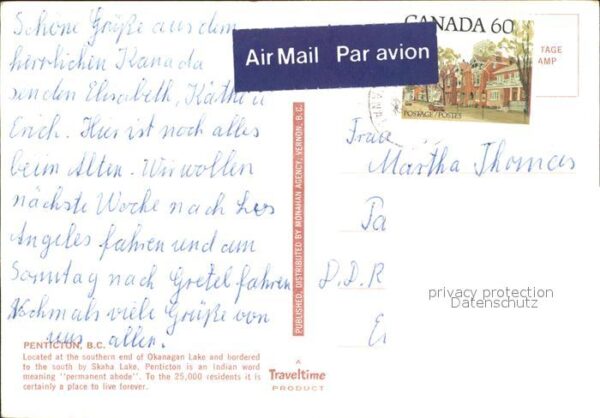 Schöne Grüße aus dem
herrlichen Kanada
senden Elisabeth, Käthe u
Erich. Hier ist noch alles
beim Alten. Wir wollen
nächste Woche nach Los
Angeles fahren und am
Sonntag nach Gretel fahren
Nochmals viele Grüße von
uns allen.
PENTICTON, B.C.
Located at the southern end of Okanagan Lake and bordered
to the south by Skaha Lake. Penticton is an Indian word
meaning "permanent abode". To the 25,000 residents it is
certainly a place to live forever.
Air Mail Par avion
PUBLISHED, DISTRIBUTED BY MONAHAN AGENCY, VERNON, B.C.
A
Traveltime
PRODUCT
CANADA 60
POSTAGE/POSTES
TAGE
AMP
Frau
Martha Thomas
Pa
D.D.R
privacy protection
Datenschutz